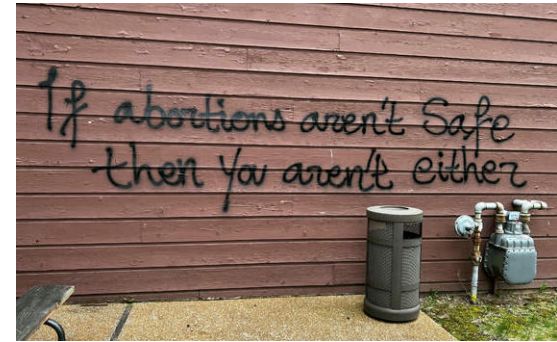 If abortions aren't safe
then you aren't either